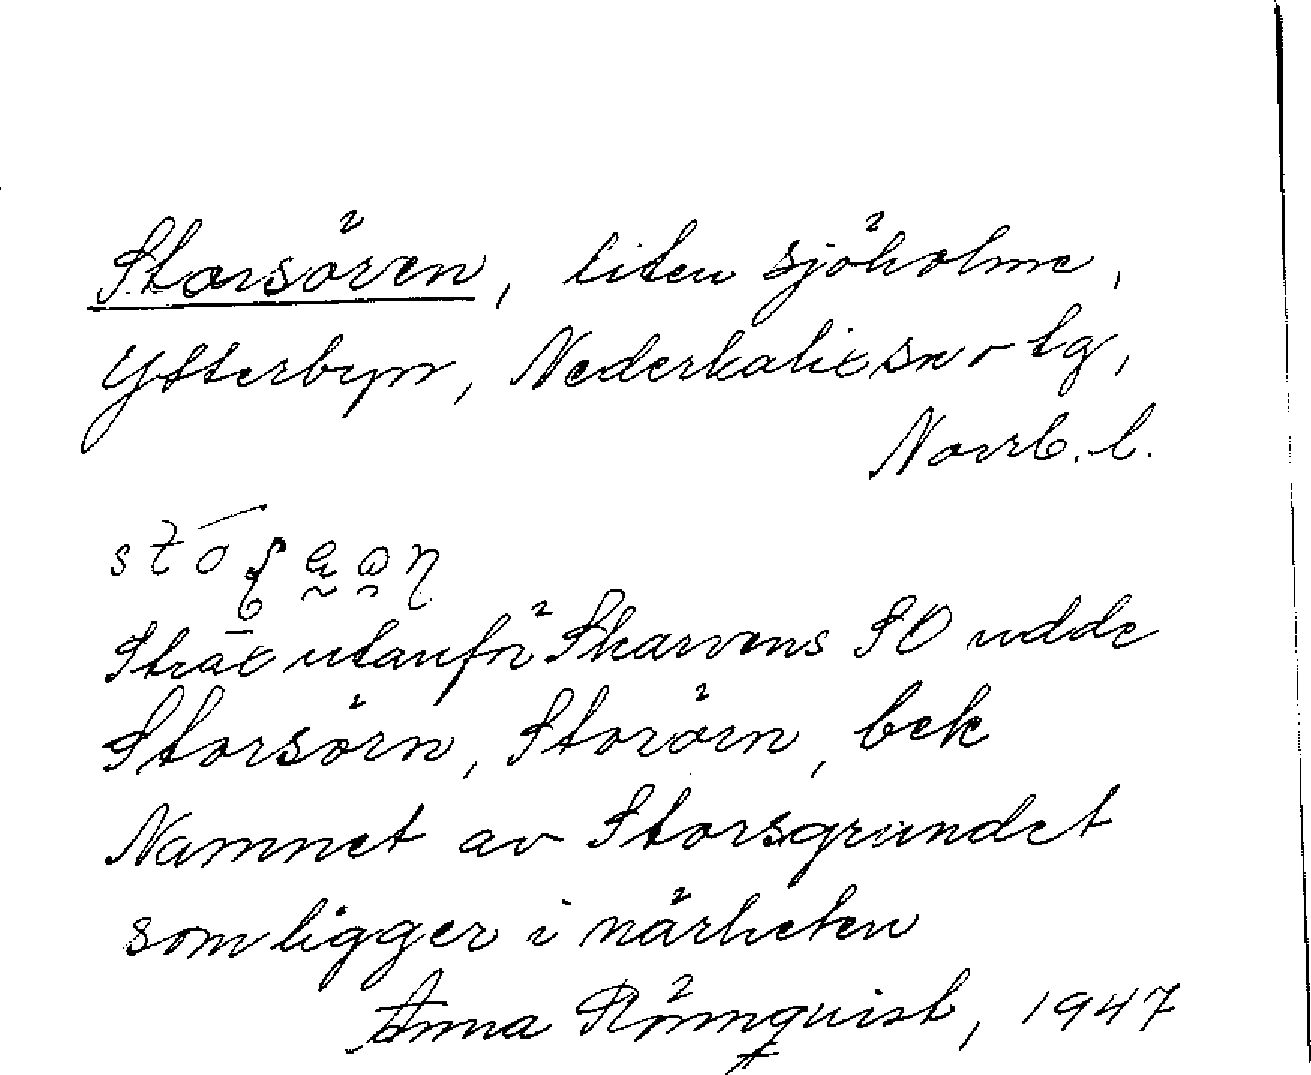 Storsören, liten sjöholme,
Ytterbyn, Nederkalix sn o tg,
Norrb. l.
Strax utanför Skarvens SO udde
Storsörn, Storörn, bek
Namnet av Storsgrundet
som ligger i närheten
Anna Rönnquist, 1947